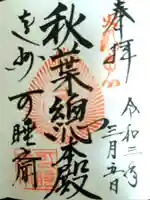 奉拝
令和三年
三月五日
秋葉總本殿
遠州 可睡斎